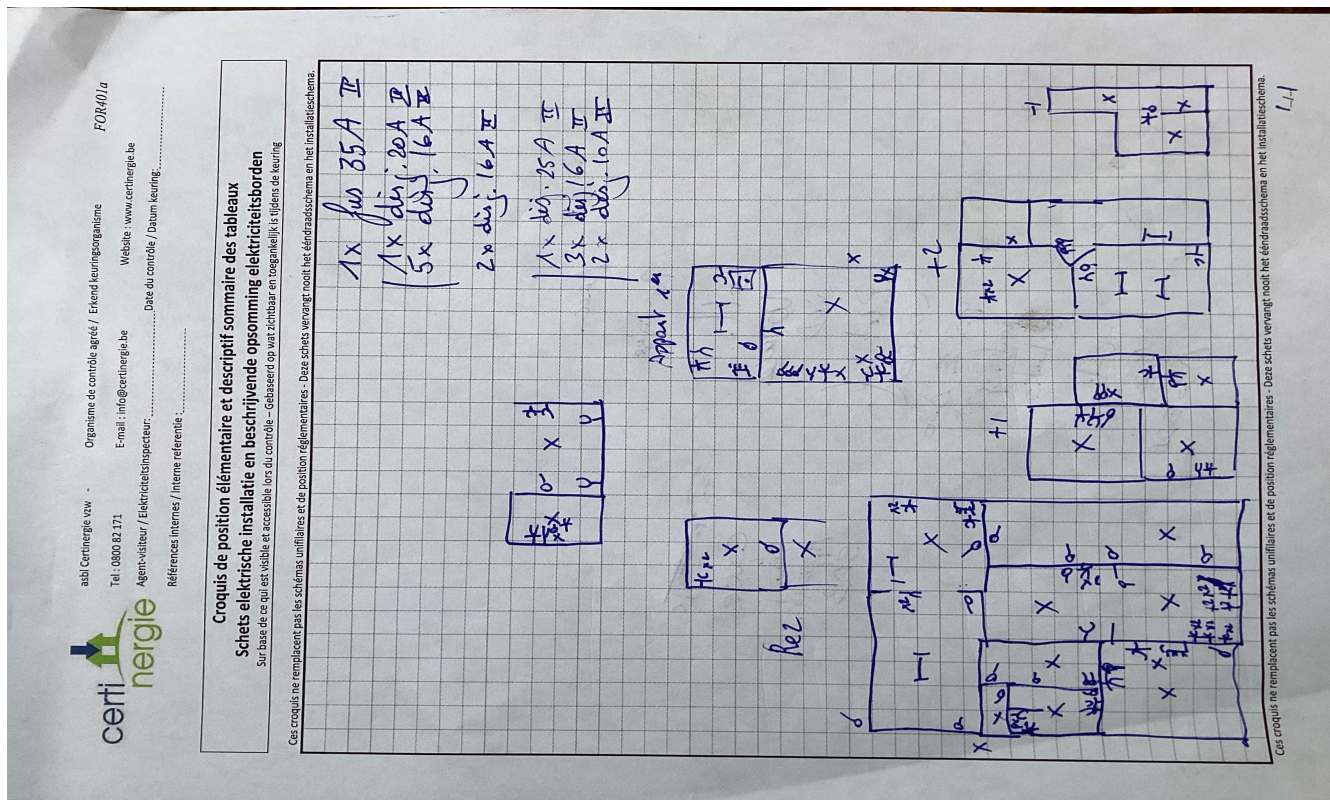 certi
nergie
asbl Certinergie vzw -
Organisme de contrôle agréé / Erkend keuringsorganisme
FOR401a
Tel : 0800 82 171
E-mail : info@certinergie.be
Website : www.certinergie.be
Agent-visiteur / Elektriciteitsinspecteur:
Date du contrôle / Datum keuring:
Références internes / Interne referentie :
Croquis de position élémentaire et descriptif sommaire des tableaux
Schets elektrische installatie en beschrijvende opsomming elektriciteitsborden
Sur base de ce qui est visible et accessible lors du contrôle – Gebaseerd op wat zichtbaar en toegankelijk is tijdens de keuring
Ces croquis ne remplacent pas les schémas unifilaires et de position réglementaires - Deze schets vervangt nooit het ééndraadsschema en het installatieschema.
1x fus 35A II
1x disj. 20A II
5x disj. 16A II
2x disj. 16A II
1x disj. 25A II
3x disj 16A II
2x disj. 10A II
Appart 1er
Rez
+1
+2
-1
Ces croquis ne remplacent pas les schémas unifilaires et de position réglementaires - Deze schets vervangt nooit het ééndraadsschema en het installatieschema.